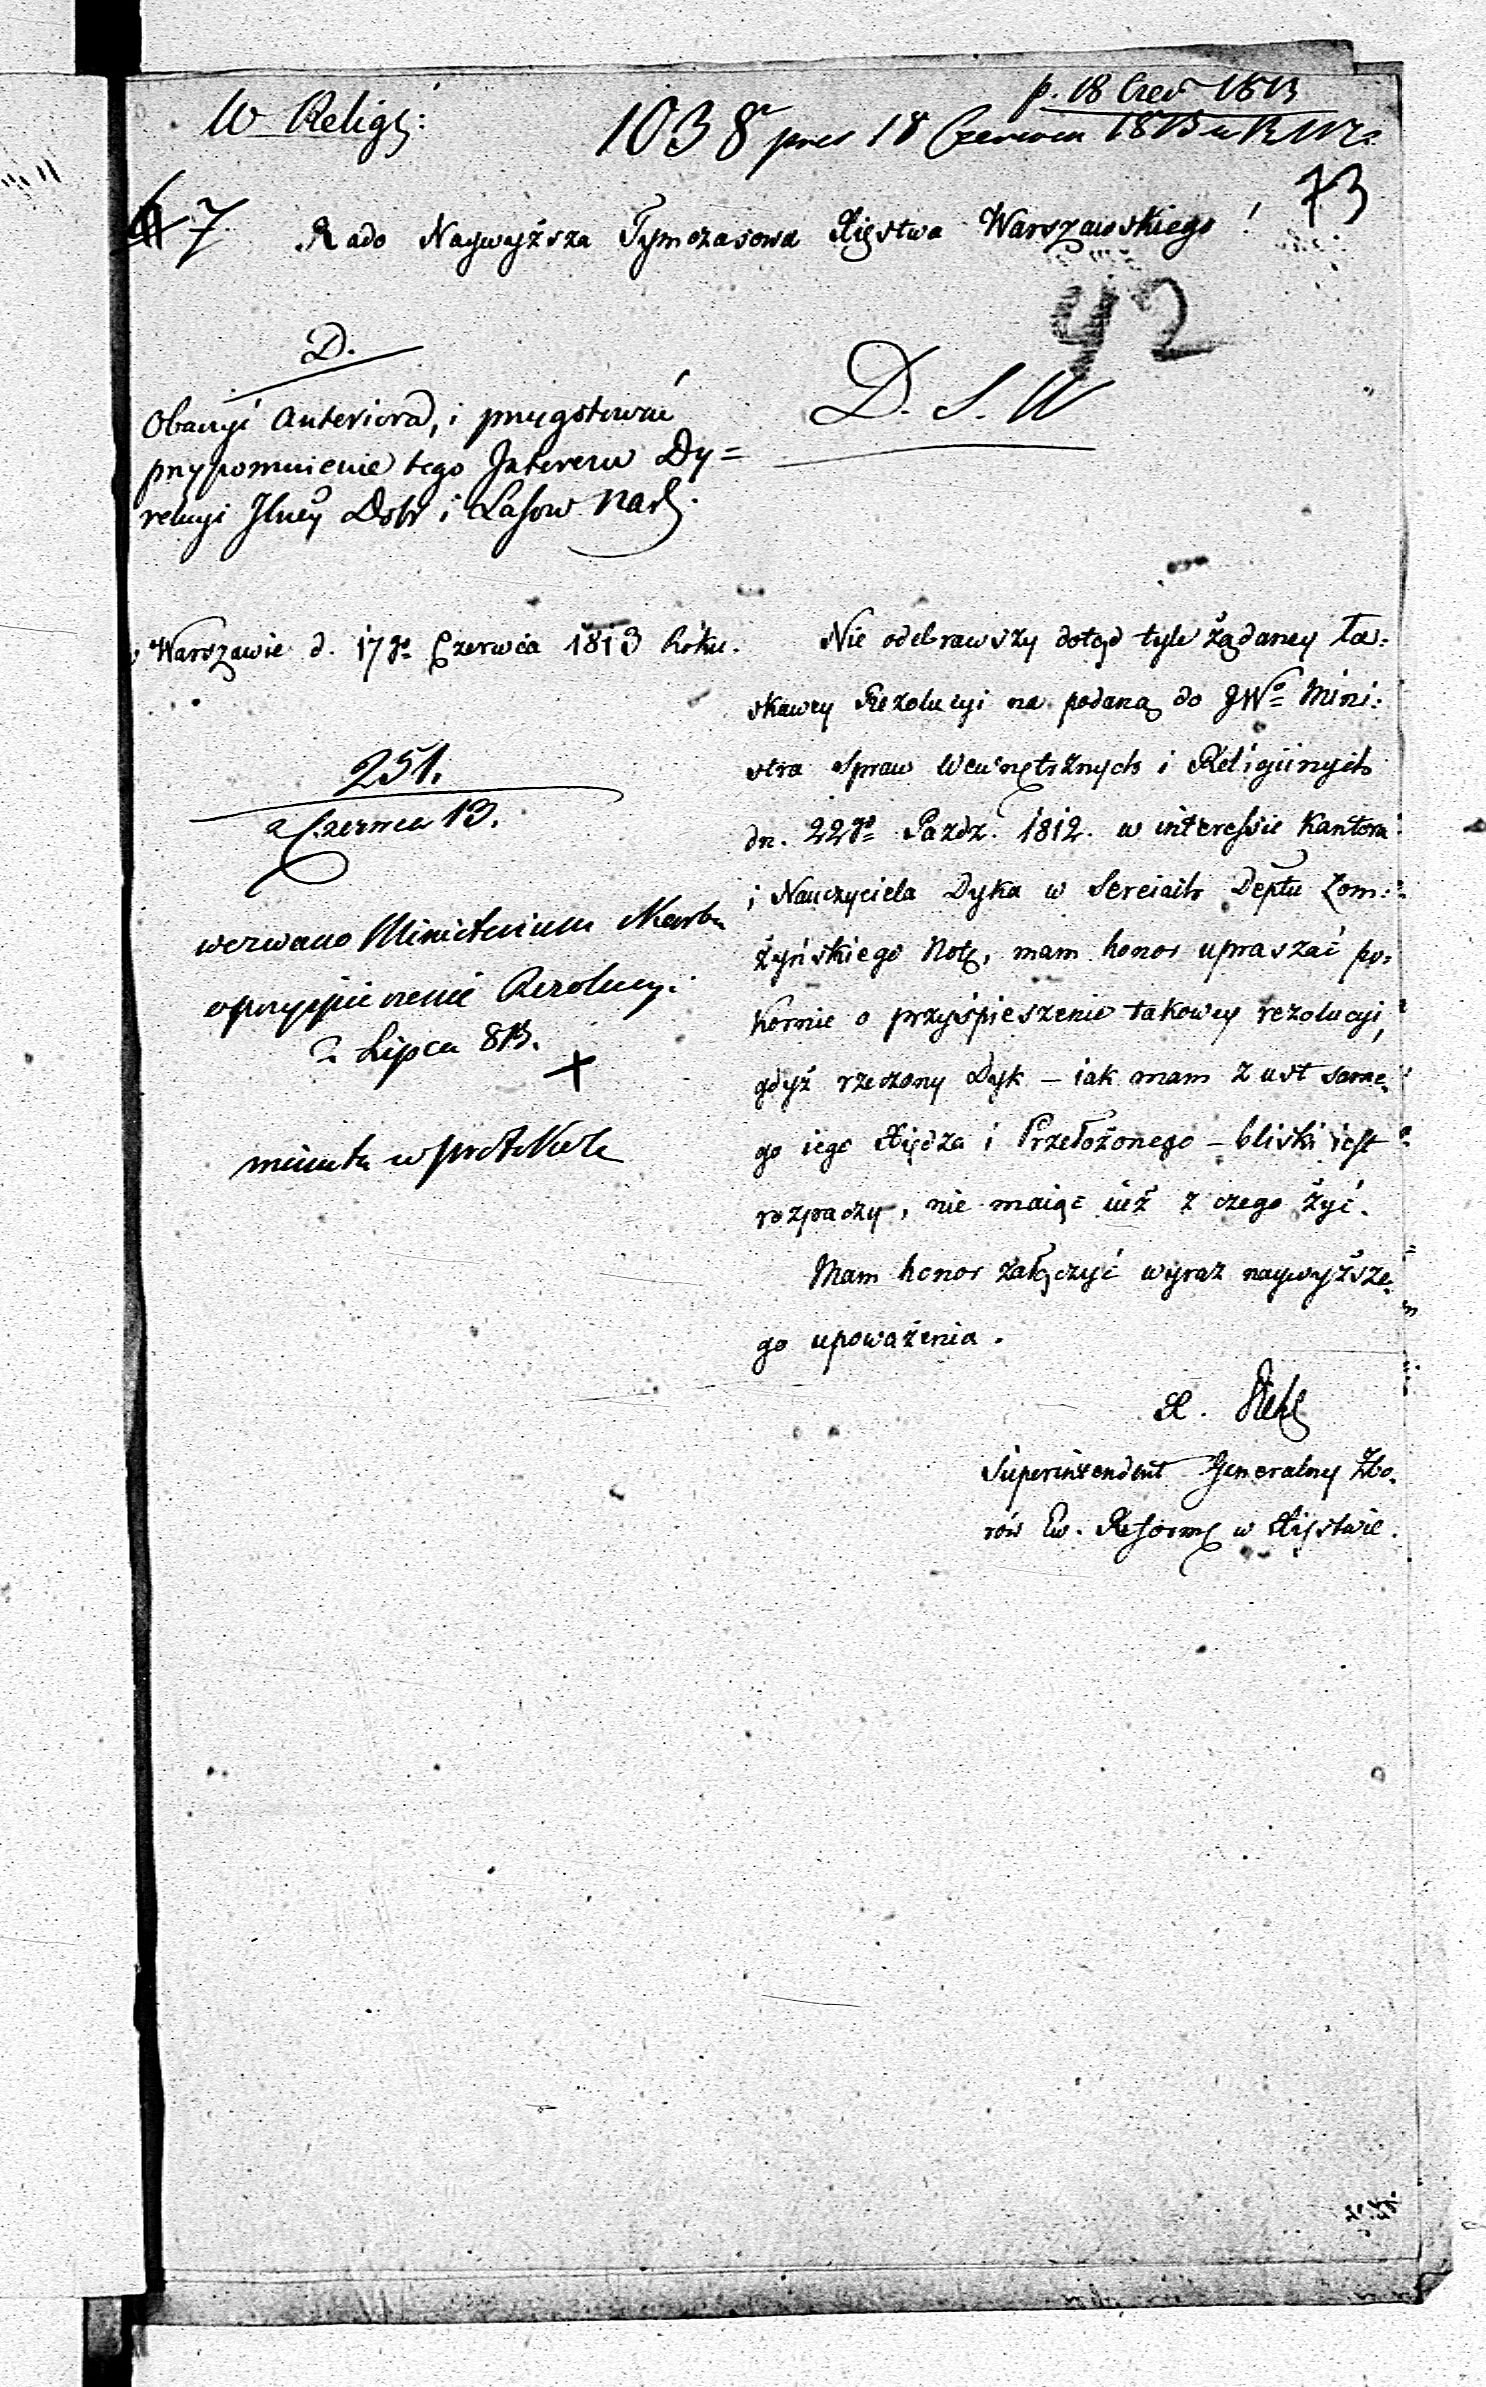 W Religij:
p. 18 Czerw 1813
1038 pres 18 Czerwca 1813
7
73
Rado Naywyższa Tymczasowa Xięstwa Warszawskiego!
92
D.
D. S. W
Obaczyć anteriora, i przygotować
przypomnienie tego Interesu Dy=
rekcyi Dobr i Lasow Nar.
w Warszawie d. 17go Czerwca 1813 Roku.
251.
2 Czerwca 13.
wezwano Ministerium Skarbu
o przyspieszenie Rezolucyi
2 Lipca 813.
minuta w protokole
Nie odebrawszy dotąd tyle żądaney ła:
skawey Rezolucyi na podaną do JWo Mini:
stra Spraw Wewnętrznych i Religiinych
dn. 22go Pazdz. 1812. w interessie Kantora
i Nauczyciela Dyka w Sereiach Deptu Łom:
żyńskiego Notę, mam honor upraszać po,
kornie o przyśpieszenie takowey rezolucyi,
gdyż rzeczony Dyk – iak mam z ust same,
go iego Xiędza i Przełożonego – bliski iest
rozpaczy, nie maiąc iuż z czego żyć.
Mam honor załączyć wyraz naywyższe,
go upoważenia.
X. Diehl
Superintendent Generalny Zbo,
rów Ew. Reform w Xięstwie.